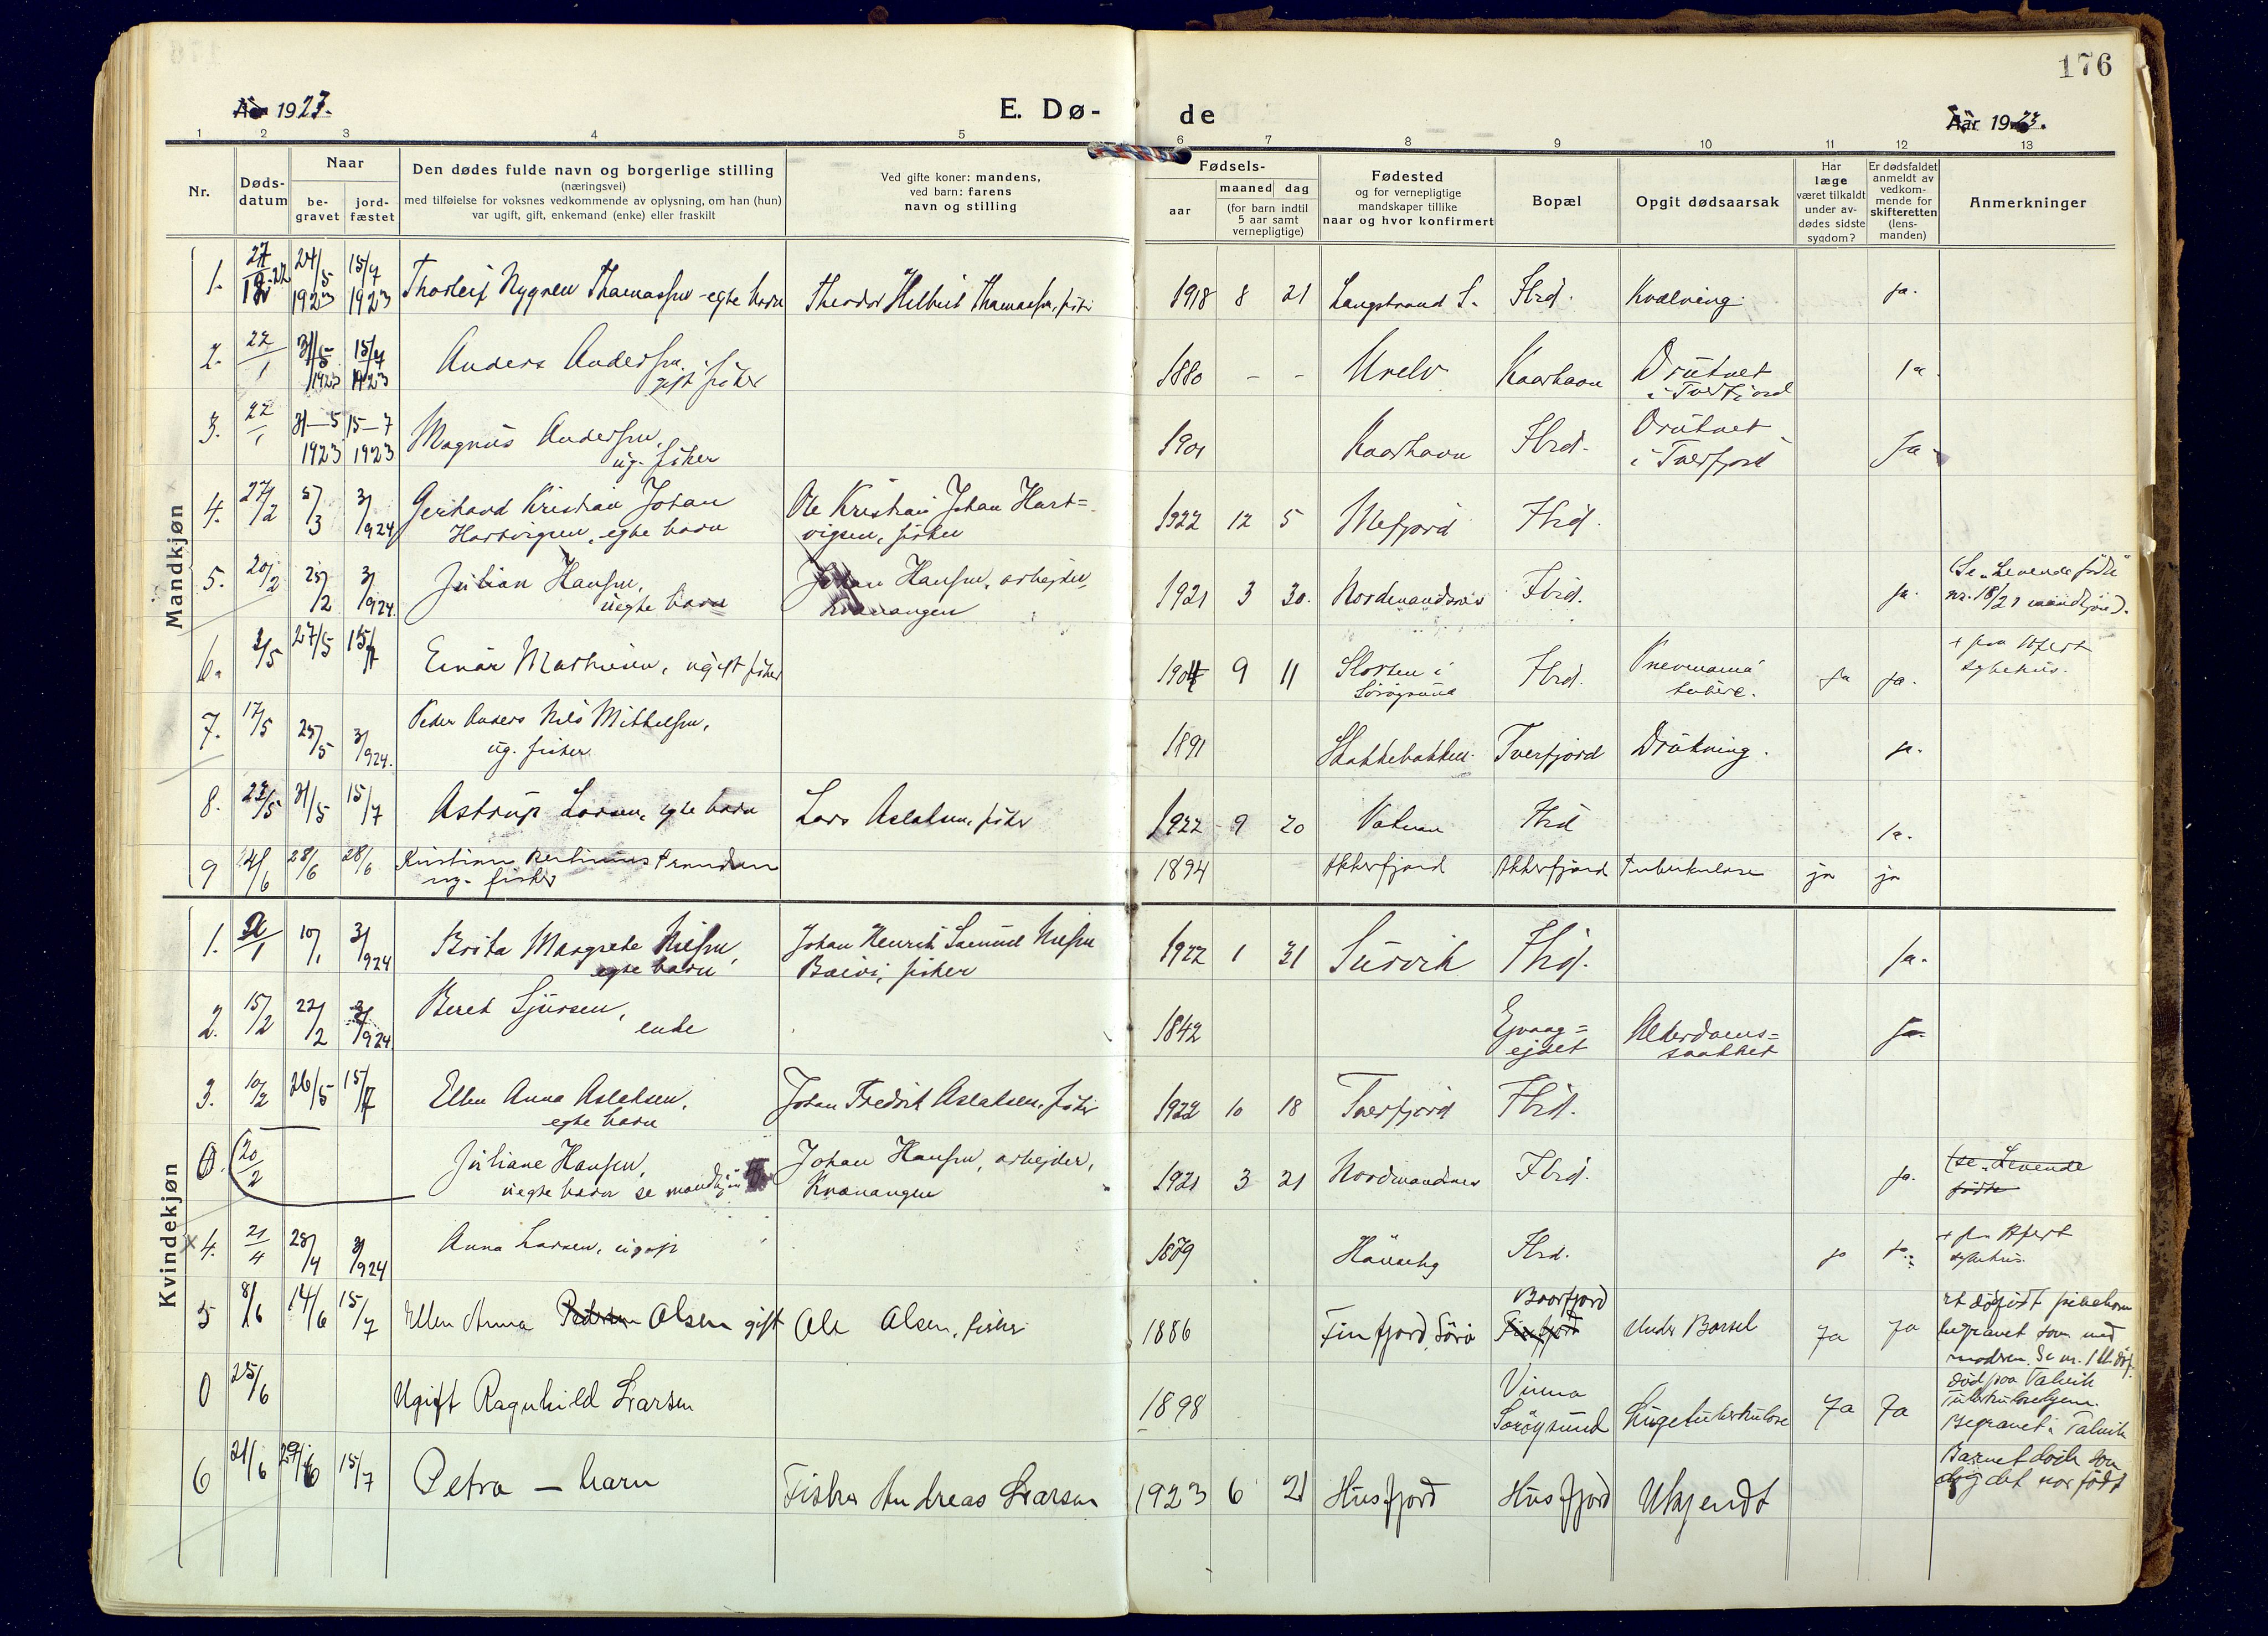 176
Aar 1923.
E. Dø-
de
Aar 1923.
1 2 3 4 5 6 7 8 9 10 11 12 13
Nr.
Døds-
datum
Naar
be-
gravet
jord-
fæstet
Den dødes fulde navn og borgerlige stilling
(næringsvei)
med tilføielse for voksnes vedkommende av oplysning, om han (hun)
var ugift, gift, enkemand (enke) eller fraskilt
Ved gifte koner: mandens,
ved barn: farens
navn og stilling
Fødsels-
aar
maaned dag
(for barn indtil
5 aar samt
vernepligtige)
Fødested
og for vernepligtige
mandskaper tillike
naar og hvor konfirmert
Bopæl
Opgit dødsaarsak
Har
læge
været tilkaldt
under av-
dødes sidste
sygdom?
Er dødsfaldet
anmeldt av
vedkom-
mende for
skifteretten
(lens-
manden)
Anmerkninger
Mandkjøn
1. 24/5 1923 15/7 1923 Thorleif Nygren Thomassen - egte barn Theodor Hilbert Thomassen, fisker 1918 8 21 Langstrand S. Ibid. Kvælning. ja.
2. 22/1 31/5 1923 15/7 1923 Anders Andersen, 1880 - - Kaarhavn Druknet ja.
gift fisker i Tverfjord
3. 22/1 31-5 1923 15-7 1923 Magnus Andersen, 1901 Kaarhavn Ibid. Druknet Ja.
ug. fisker i Tverfjord
4. 27/2 5/3 3/1 924 Gerhard Kristian Johan Ole Kristian Johan Hart= 1922 12 5 Mefjord Ibid.
Hartvigsen, egte barn vigsen, fisker
5. 20/2 25/2 3/1 924. Julian Hansen, Johan Hansen, arbejder 1921 3 30. Nordmandsnes Ibid. ja. (Se "Levende fødte"
uegte barn Kvænangen nr. 18/21 mandkjøn).
6. 3/5 27/5 15/7 Einar Mathisen, ugift fisker 1904 9 11 Slotten i Ibid. Ja ja. + paa Hfest
Sørøysund sykehus.
7. 17/5 25/5 3/1 924. Peder Anders Nils Mikkelsen, 1891 Skakkebakken Tverfjord Drukning. ja.
ug. fisker
8. 23/5 31/5 15/7 Astrup Larsen, egte barn Lars Aslaksen, fisker 1922 9 20 Ibid ja.
9 14/6 28/6 28/6 Kristian 1894 Akkerfjord Akkerfjord Tuberkulose ja ja
ug. fisker
Kvindekjøn
1. 10/1 3/1 924 Brita Margrete Nilsen, Johan Henrik Samuel Nilsen 1922 1 31 Survik Ibid. Ja.
egte barn Baivi, fisker
2. 15/2 22/2 3/1 924 Beret Sjursen, 1842 Alderdoms= Ja.
enke ejdet svakhet
3. 10/2 26/5 15/7 Ellen Anna Aslaksen, Johan Fredrik Aslaksen, fisker 1922 10 18 Tverfjord Ibid.
egte barn
0. (20/2 Juliane Hansen, Johan Hansen, arbejder, 1921 3 21 Nordmandsnes Ibid. Ja. (se "Levende
uegte barn se mandkjøn Kvænangen fødte
x 4. 21/4 28/4 3/1 924 Anna Larsen, ugift 1879 Ibid. ja + paa Hfest
sykehus.
5 8/6 14/6 15/7 Ellen Anna Pedersen Olsen gift Ole Olsen, fisker 1886 Finfjord, Sørø Baarfjord Under Barsel Ja Ja et dødfødt pikebarn
Finfjord begravet sam. med
modren. Se nr. 1 U. døf.
0 25/6 Ugift Ragnhild Larsen 1898 Vinna Lugetuberkulose Ja Ja Død paa Talvik
Sørøysund Tuberkulosehjem.
Begravet i Talvik
6 21/6 29/6 15/7 Petra - barn Fisker Andreas Larsen 1923 6 21 Husfjord Husfjord Ukjendt Barnet døde som
døg det var født